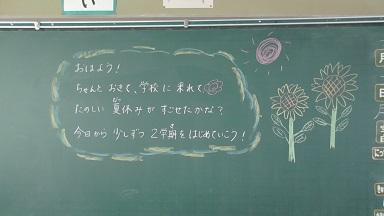 い
おはよう!
ちゃんと おきて、学校に 来れて
たのしい 夏休みが すごせたかな?
今日から 少しずつ 2学期を はじめていこう!
月
日